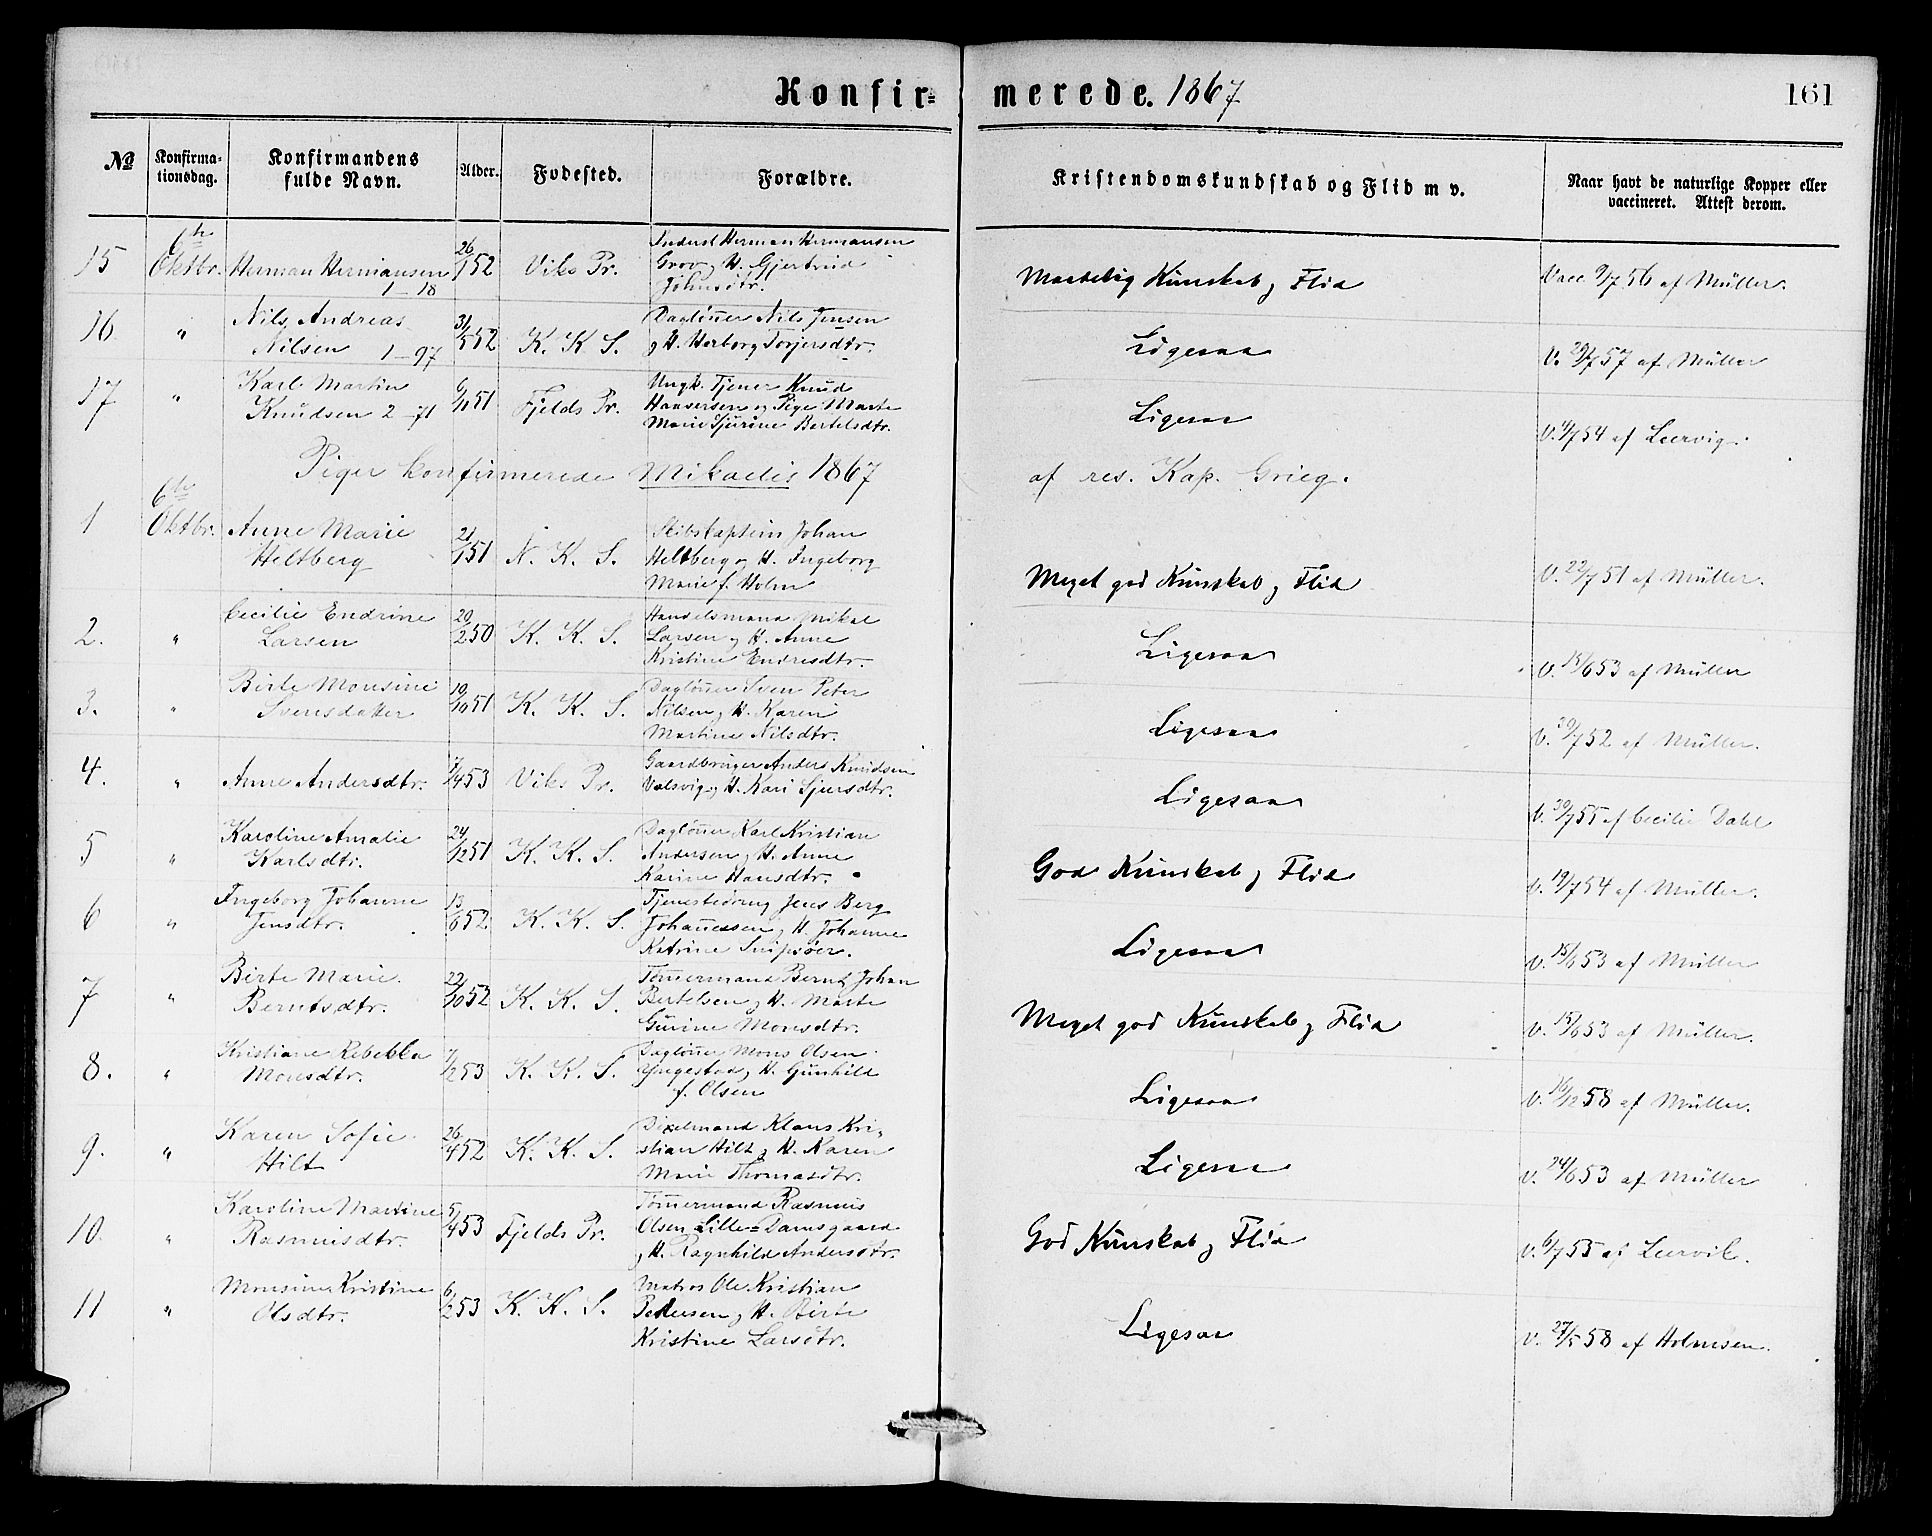 Konfir= merede. 1867 161
№ Konfirma- tionsdag. Konfirmandens fulde Navn. Alder. Fodested. Forældre. Kristendomskundskab og Flid m v. Naar havt de naturlige Kopper eller vaccineret. Attest derom.
15 6te Oktbr. Herman Hermansen 26/1 52 Viks Pr. Herman Hermansen
1-18 Grov og H. Gjertrud Maadelig Kunskab og Flid Vacc 9/7 56 af Müller.
Johnsdtr.
16 " Nils Andreas 31/5 52 K. K. S. Daglöner Nils Jensen
Nilsen 1-97 og H. Herborg Torjersdtr. Ligesaa V. 29/7 57 af Müller
17 " Karl Martin 6/11 51 Fjelds Pr. Ungk. Tjener Knud
Knudsen 2-71 Hansersen og Pige Marte Ligesaa V. 4/7 54 af Leervig.
Marie Sjurine Bertelsdtr.
Piger konfirmerede Mikaelis 1867 af res. Kap. Grieg.
1 6te Oktbr. Anne Marie 21/1 51 N. K. S. Skibskaptein Johan
Heltberg Heltberg og H. Ingeborg Meget god Kunskab og Flid V. 22/7 51 af Müller.
Marie f. Holm
2. " Cecilie Endrine 20/2 50 K. K. S. Handelsmand Mikal
Larsen Larsen og H. Anne Ligesaa V. 15/6 53 af Müller
Kristine Endresdtr.
3. " Birte Monsine 10/10 51 K. K. S. Daglöner Sven Peter
Svensdatter Nilsen og H. Karen Ligesaa V. 30/7 52 af Müller.
Martine Nilsdtr.
4. " Anne Andersdtr. 7/4 53 Viks Pr. Gaardbruger Anders Knudsen
Valsvig og H. Kari Sjursdtr. Ligesaa V. 30/7 55 af Cecilie Dahl
5 " Karoline Amalie 24/12 51 K. K. S. Daglöner Karl Kristian
Karlsdtr. Andersen og H. Anne God Kunskab og Flid V. 19/7 54 af Müller.
Karine Hansdtr.
6 " Ingeborg Johanne 13/6 52 K. K. S. Tjenestedreng Jens Berg
Jensdtr. Johannessen og H. Johanne Ligesaa V. 15/6 53 af Müller
Katrine Snipsöer.
7 " Birte Marie 22/10 52 K. K. S. Tömmermand Bernt Johan
Berntsdtr. Bertelsen og H. Marte Meget god Kunskab og Flid V. 15/6 53 af Müller.
Gurine Monsdtr.
8. " Kristiane Rebekka 7/2 53 K. K. S. Daglöner Mons Olsen
Monsdtr. Yngestad og H. Gunhild Ligesaa V. 16/12 58 af Müller.
f. Olsen
9. " Karen Sofie 26/4 52 K. K. S. Dixelmand Klaus Kri-
Hilt stian Hilt og H. Karen Ligesaa V. 24/6 53 af Müller
Marie Thomasdtr.
10. " Karoline Martine 5/4 53 Fjelds Pr. Tömmermand Rasmus
Rasmusdtr. Olsen Lille-Damsgaard God Kunskab og Flid V. 6/7 55 af Leervik.
og H. Ragnhild Andersdtr.
11 " Monsine Kristine 6/2 53 K. K. S. Matros Ole Kristian
Olsdtr. Pedersen og H. Birte Ligesaa V. 27/5 58 af Holmsen.
Kristine Larsdtr.